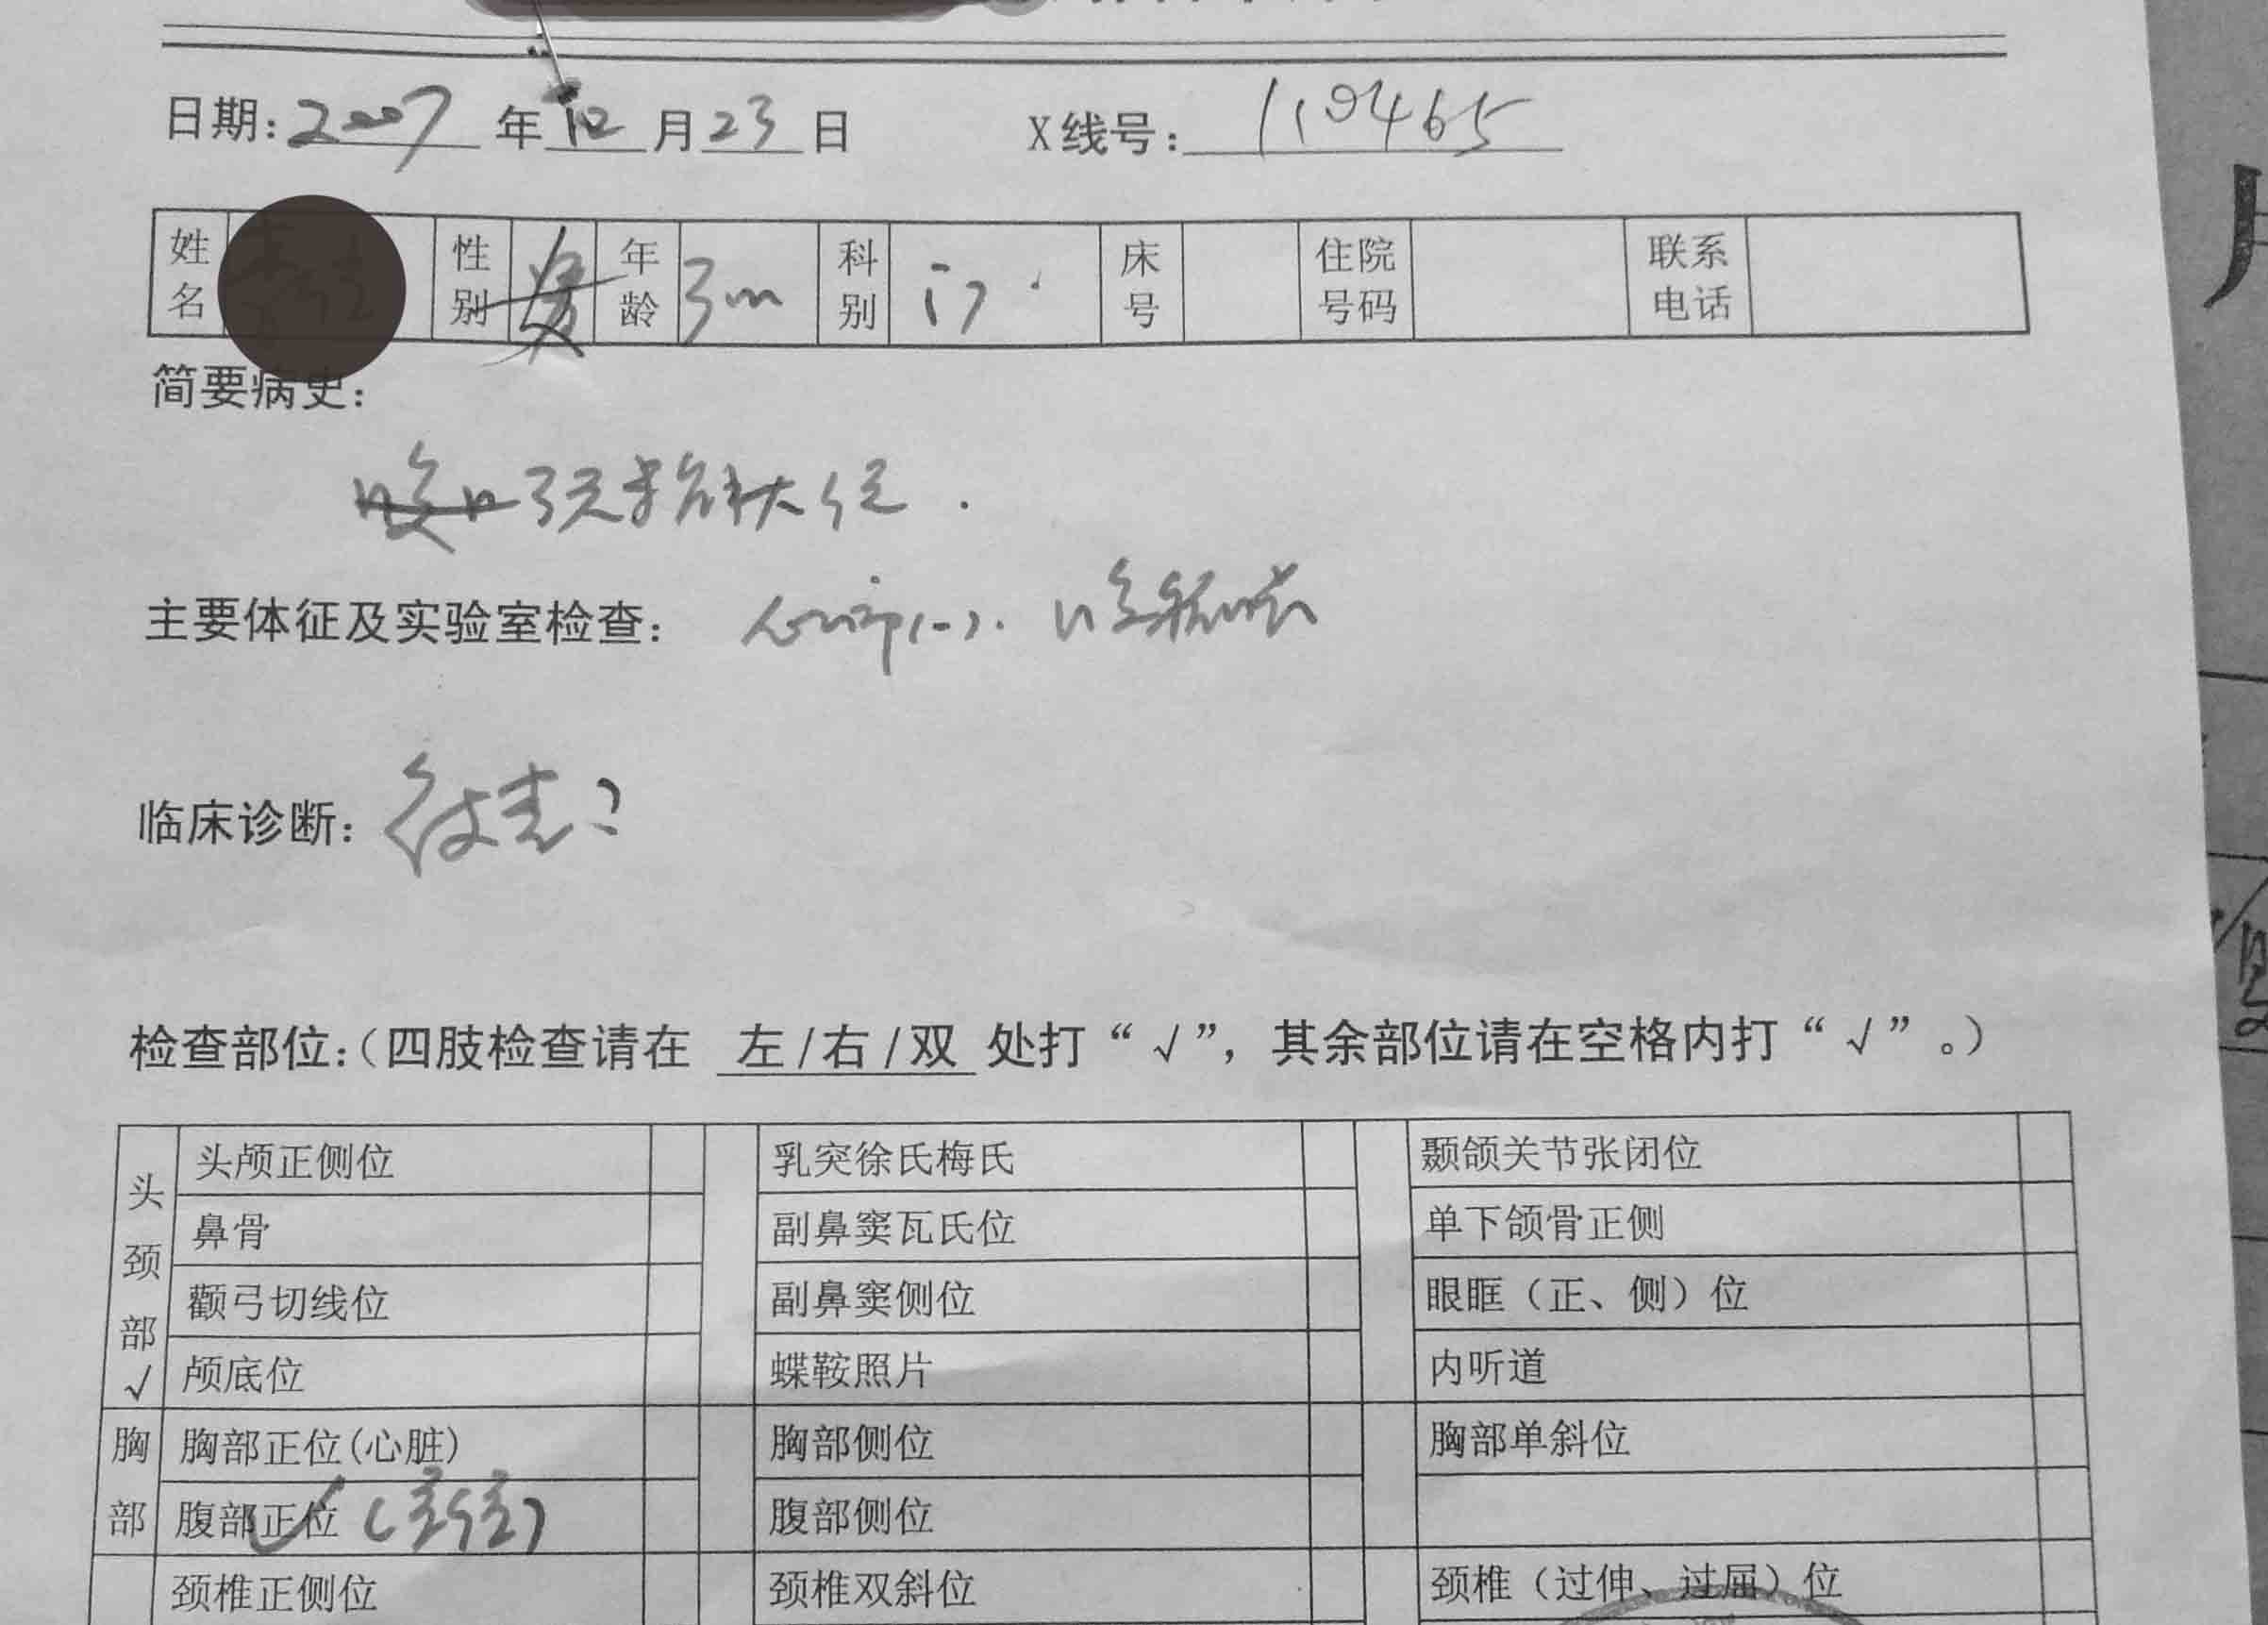 日期: 2007 年 12 月 23 日 X线号: 110465
姓名 性别 男 年龄 3m 科别 门 床号 住院号码 联系电话
简要病史:
3天未解大便.
主要体征及实验室检查: 心肺(-).
临床诊断:
检查部位:(四肢检查请在 左/右/双 处打“√”,其余部位请在空格内打“√”。)
头颈部√ 头颅正侧位 乳突徐氏梅氏 颞颌关节张闭位
鼻骨 副鼻窦瓦氏位 单下颌骨正侧
颧弓切线位 副鼻窦侧位 眼眶(正、侧)位
颅底位 蝶鞍照片 内听道
胸部 胸部正位(心脏) 胸部侧位 胸部单斜位
腹部正位 ✓ (立位) 腹部侧位
颈椎正侧位 颈椎双斜位 颈椎(过伸、过屈)位